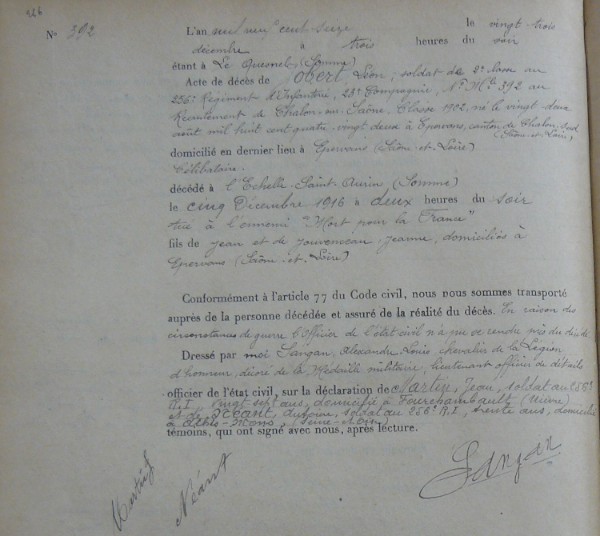 N° 392
L'an mil neuf cent seize le vingt-trois
décembre à trois heures du soir
étant à Le Quesnel (Somme)
Acte de décès de Obert Léon, soldat de 2e classe au
256e Régiment d'Infanterie, 24e Compagnie, N° Mle 392 au
Recrutement de Chalon-sur-Saône. Classe 1902, né le vingt-deux
août mil huit cent quatre-vingt deux à Epervans, canton de Chalon-Sud
(Saône-et-Loire)
domicilié en dernier lieu à Epervans (Saône-et-Loire)
Célibataire.
décédé à l'Echelle-Saint-Aurin (Somme)
le cinq Décembre 1916 à deux heures du soir
tué à l'ennemi "Mort pour la France"
fils de Jean et de Jouvenceau Jeanne, domiciliés à
Epervans (Saône-et-Loire)
Conformément à l'article 77 du Code civil, nous nous sommes transporté
auprès de la personne décédée et assuré de la réalité du décès. En raison des
circonstances de guerre l'Officier de l'état civil n'a pu se rendre près du décédé
Dressé par moi Sangan, Alexandre Louis chevalier de la Légion
d'honneur, décoré de la Médaille militaire, lieutenant officier de détails
officier de l'état civil, sur la déclaration de Martin, Jean, soldat au 256e
R.I, vingt sept ans, domicilié à Fourchambault (Nièvre)
et de Néant, Antoine, soldat au 256e R.I, trente ans, domicilié
à
témoins, qui ont signé avec nous, après lecture.
Néant
Sangan